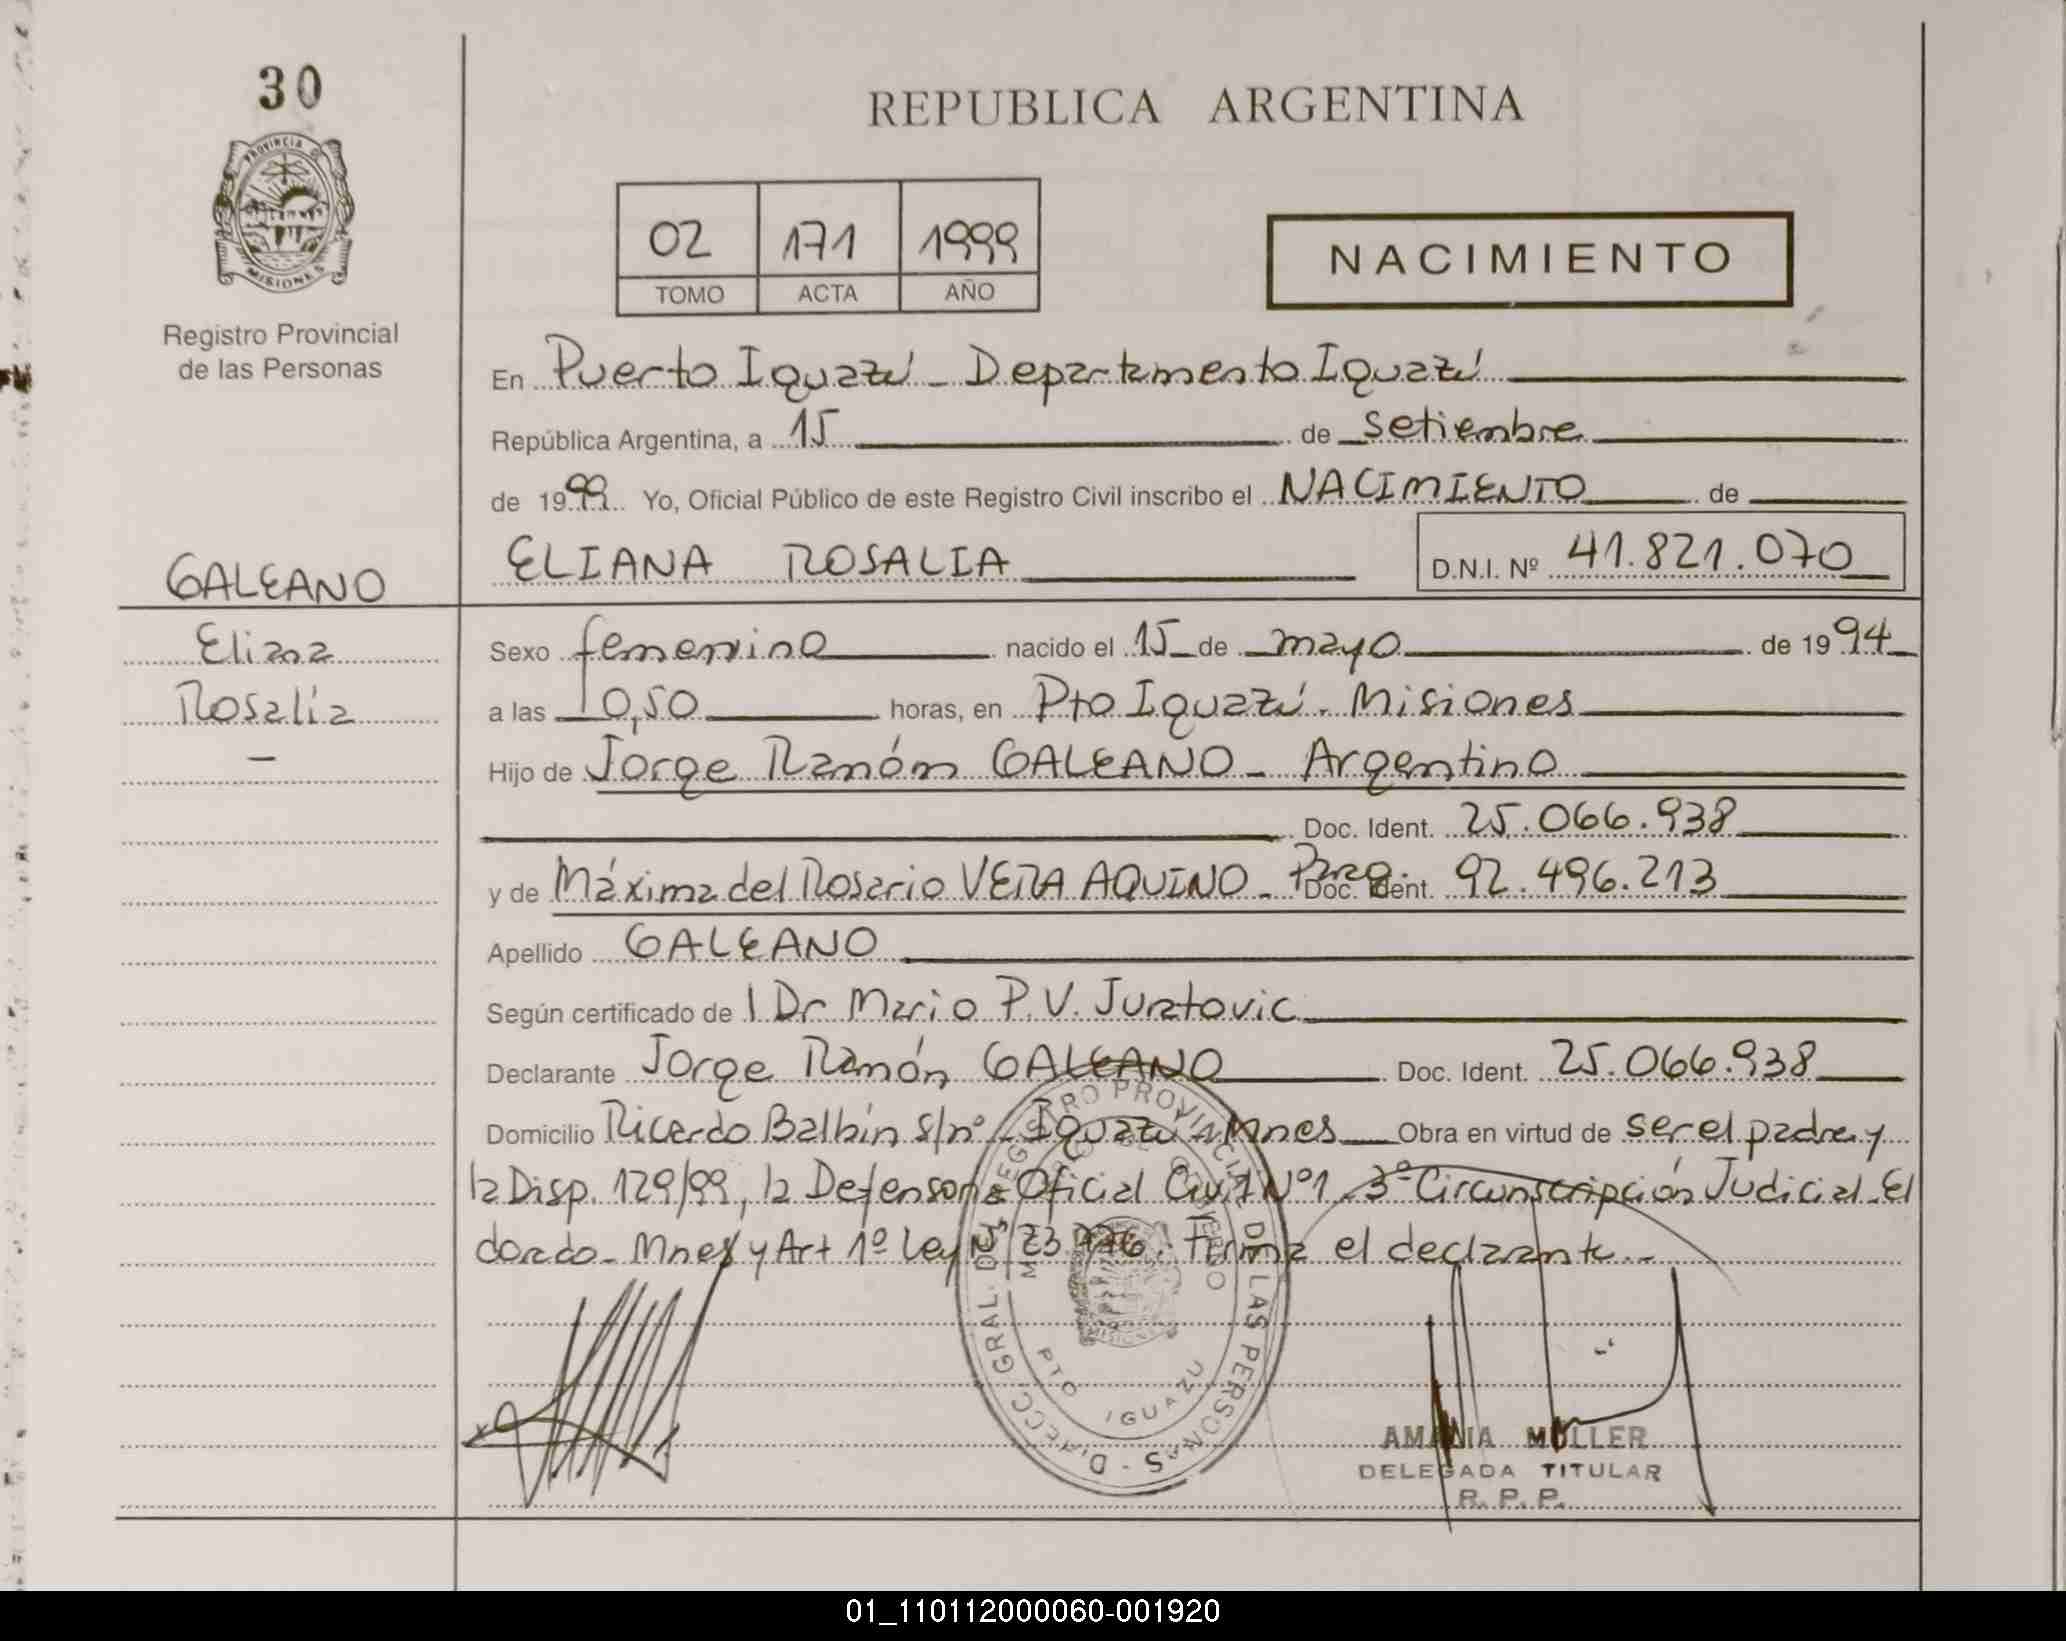 30
REPUBLICA ARGENTINA
PROVINCIA D MISIONES
02 171 1999
TOMO ACTA AÑO
NACIMIENTO
Registro Provincial
de las Personas
En Puerto Iguazú - Departamento Iguazú
República Argentina, a 15 de Setiembre
de 1999 Yo, Oficial Público de este Registro Civil inscribo el NACIMIENTO de
GALEANO
ELIANA ROSALIA D.N.I. Nº 41.821.070
Eliana
Rosalia
-
Sexo femenino nacido el 15 de mayo de 1994
a las 10,50 horas, en Pto Iguazú - Misiones
Hijo de Jorge Ramón GALEANO - Argentino
Doc. Ident. 25.066.938
y de Máxima del Rosario VERA AQUINO - Parag. Doc. Ident. 92.496.213
Apellido GALEANO
Según certificado de l Dr Mario P.V. Juratovic
Declarante Jorge Ramón GALEANO Doc. Ident. 25.066.938
Domicilio Ricardo Balbín s/nº - Iguazú - Mnes Obra en virtud de ser el padre y
la Disp. 129/99, la Defensoría Oficial Civil Nº1 - 3º Circunscripción Judicial - El
dorado - Mnes y Art 1º Ley 23.776. Firma el declarante.-
DIRECC GRAL. DEL REGISTRO PROVINCIAL DE LAS PERSONAS -
PTO IGUAZU
AMALIA MULLER
DELEGADA TITULAR
R. P. P.
01_110112000060-001920